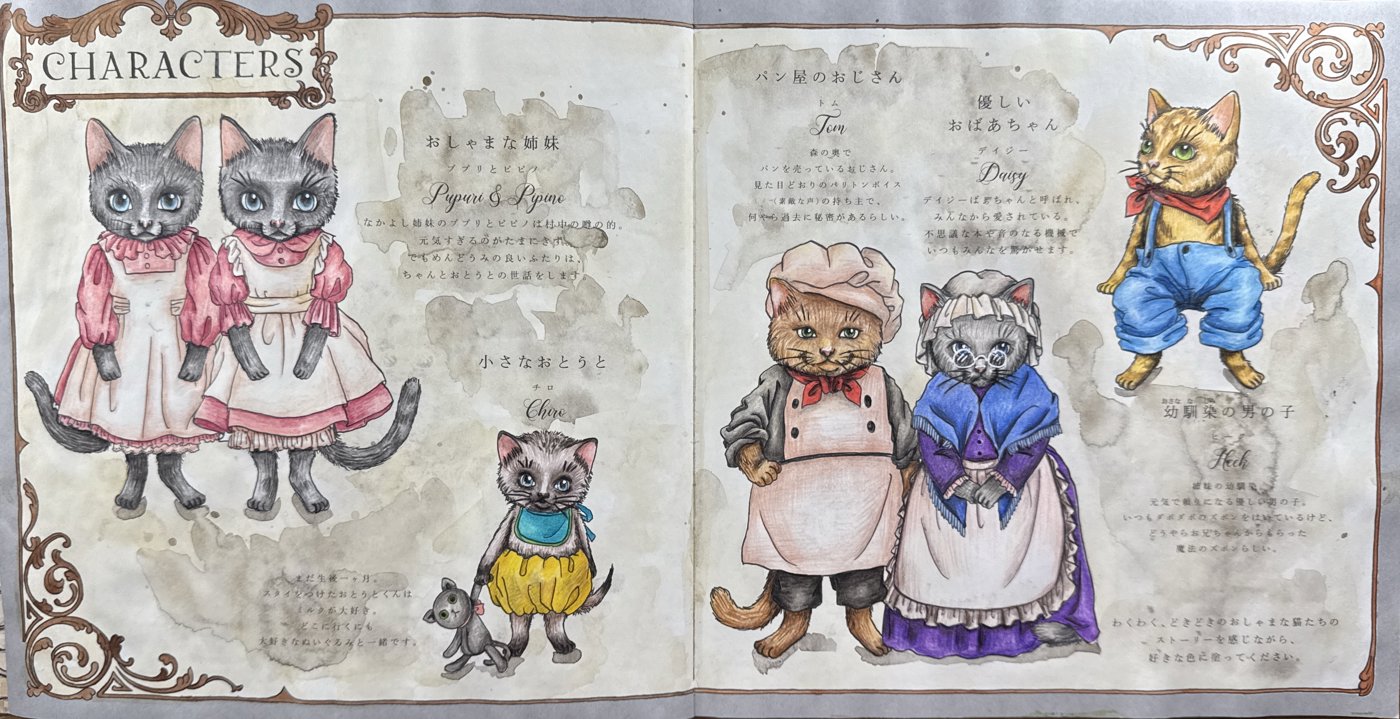 CHARACTERS
おしゃまな姉妹
ププリとピピノ
Pupuri & Pipino
なかよし姉妹のププリとピピノは村中の噂の的。
元気すぎるのがたまにきず。
でもめんどうみの良いふたりは、
ちゃんとおとうとの世話をします。
小さなおとうと
チロ
Chiro
まだ生後一ヶ月。
スタイをつけたおとうとくんは
ミルクが大好き。
どこに行くにも
大好きなぬいぐるみと一緒です。
パン屋のおじさん
トム
Tom
森の奥で
パンを売っているおじさん。
見た目どおりのバリトンボイス
(素敵な声)の持ち主で、
何やら過去に秘密があるらしい。
優しい
おばあちゃん
デイジー
Daisy
デイジーばぁちゃんと呼ばれ、
みんなから愛されている。
不思議な本や音のなる機械で
いつもみんなを驚かせます。
おさな な
幼馴染の男の子
姉妹の幼馴染。
元気で頼りになる優しい男の子。
いつもダボダボのズボンをはいているけど、
どうやらお兄ちゃんからもらった
魔法のズボンらしい。
わくわく、どきどきのおしゃまな猫たちの
ストーリーを感じながら、
好きな色に塗ってください。